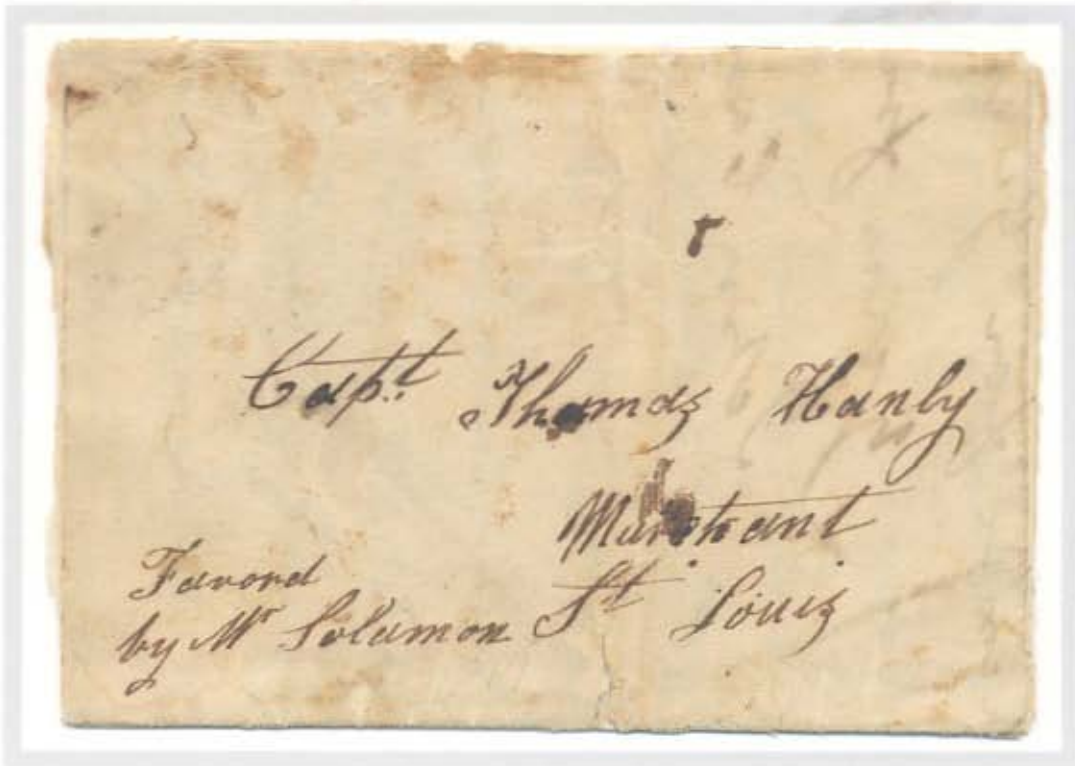 Capt. Thomas Hanly
Merchant
St Louis
Favord
by Mr Solomon